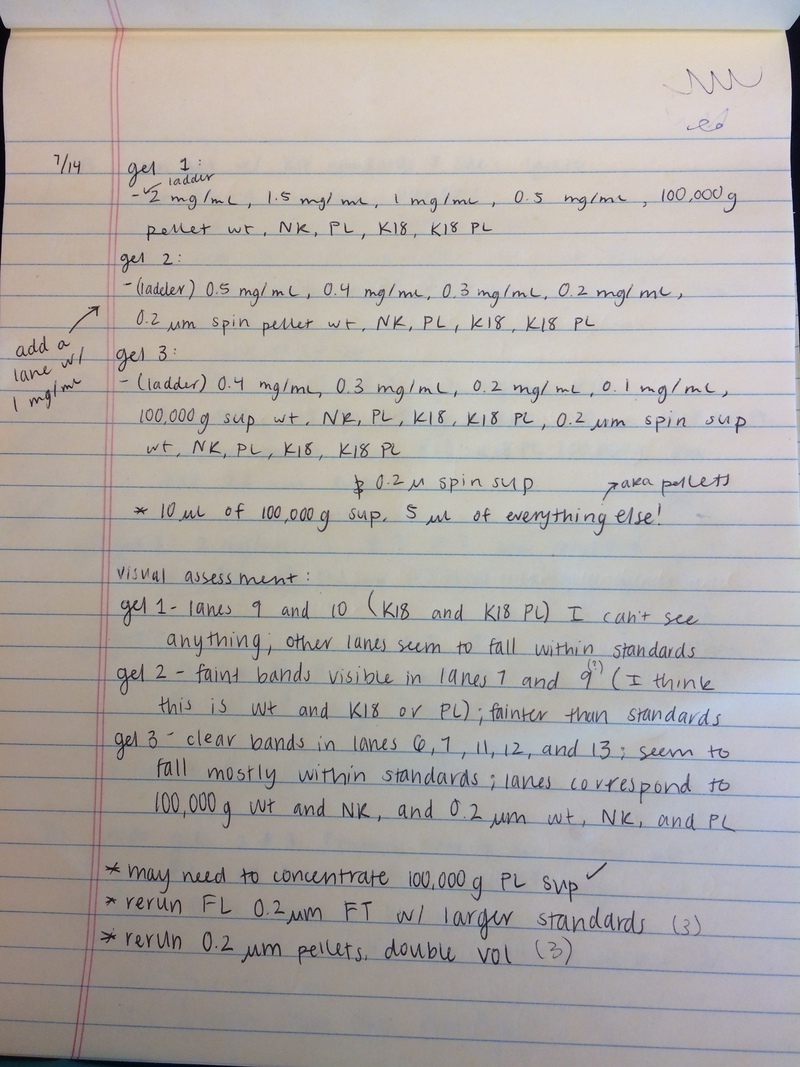 7/14
gel 1:
ladder
- 2 mg/mL, 1.5 mg/mL, 1 mg/mL, 0.5 mg/mL, 100,000 g
pellet wt, NK, PL, K18, K18 PL
gel 2:
- (ladder) 0.5 mg/mL, 0.4 mg/mL, 0.3 mg/mL, 0.2 mg/mL,
0.2 µm spin pellet wt, NK, PL, K18, K18 PL
add a
lane w/
1 mg/mL
gel 3:
- (ladder) 0.4 mg/mL, 0.3 mg/mL, 0.2 mg/mL, 0.1 mg/mL,
100,000 g sup wt, NK, PL, K18, K18 PL, 0.2 µm spin sup
wt, NK, PL, K18, K18 PL
0.2 µ spin sup
aka pellets
* 10 µL of 100,000 g sup. 5 µL of everything else!
visual assessment:
gel 1 - lanes 9 and 10 (K18 and K18 PL) I can't see
anything; other lanes seem to fall within standards
gel 2 - faint bands visible in lanes 7 and 9 (?) (I think
this is wt and K18 or PL); fainter than standards
gel 3 - clear bands in lanes 6, 7, 11, 12, and 13; seem to
fall mostly within standards; lanes correspond to
100,000 g wt and NK, and 0.2 µm wt, NK, and PL
* may need to concentrate 100,000 g PL sup ✓
* rerun FL 0.2 µm FT w/ larger standards (3)
* rerun 0.2 µm pellets, double vol (3)